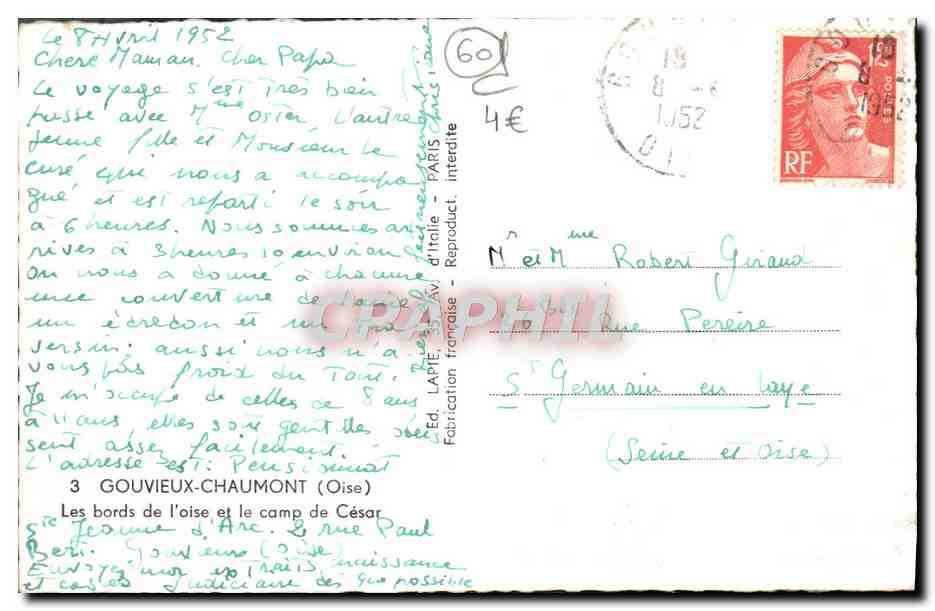 Le 8 Avril 1952
Chere Maman. Cher Papa
Le voyage s'est Très bien
passé avec Mme Oster L'autre
jeune fille et Monsieur le
curé qui nous a accompa
gné et est reparti le soir
à 6 heures. Nous sommes ar
rivés à 3 heures 10 environ
on nous a donné à chacune
une couverture de laine
un édredon et un tra
versin. aussi nous n'a
vons pas froid du Tout.
Je m'occupe de celles de 8 ans
à 11 ans, elles sont gentilles obéis
sent assez facilement.
L'adresse est: Pensionnat
3 GOUVIEUX-CHAUMONT (Oise)
Les bords de l'oise et le camp de César
Ste Jeanne d'Arc. 2 rue Paul
Bert. Gouvieux (Oise)
Envoyez moi extraits naissance
et casier Judiciaire dès que possible
Christiane
Ed. LAPIE, 35, Av. d'Italie - PARIS
Fabrication française - Reproduct. interdite
60
4€
18
8 -4
1952
OI
18
8
1952
12F
POSTES
RF
Mr et Mme Robert Giraud
bis Rue Pereire
St Germain en Laye
(Seine et Oise)
CPAPHIL